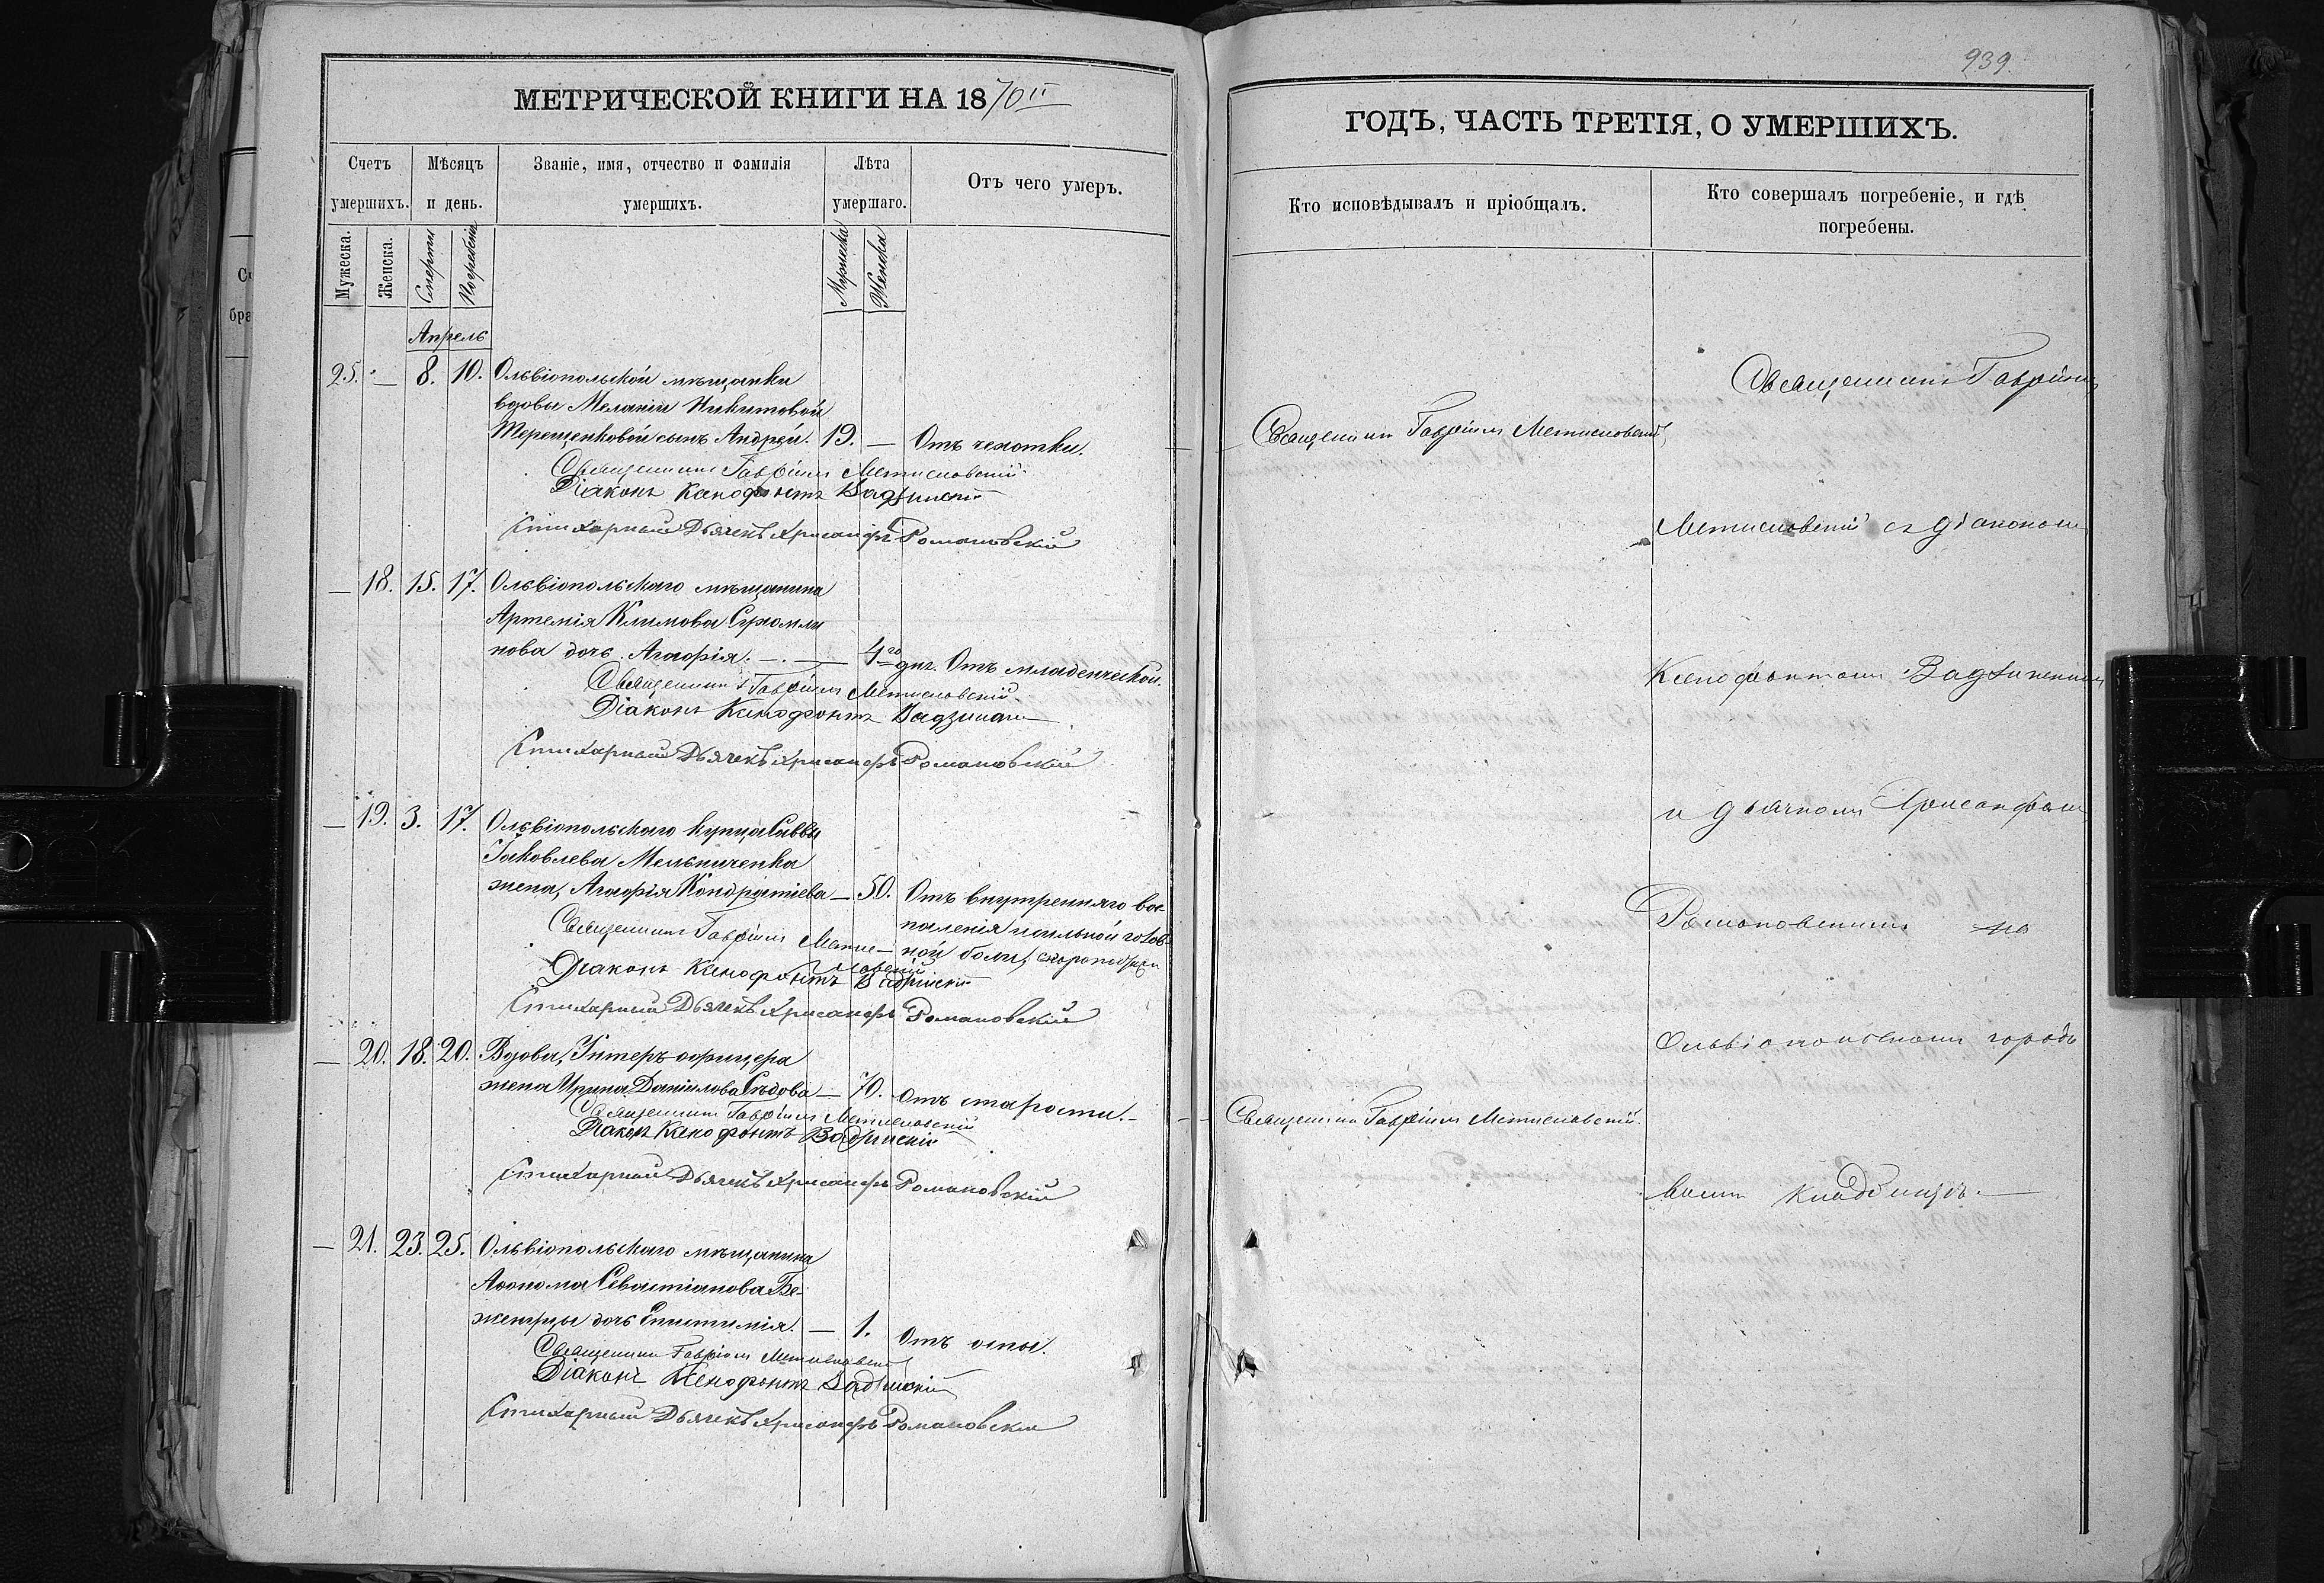 МЕТРИЧЕСКОЙ КНИГИ НА 1870й
Счетъ умершихъ.
Мѣсяцъ и день.
Званіе, имя, отчество и фамилія умершихъ.
Лѣта умершаго.
Отъ чего умеръ.
Мужеска.
Женска.
Смерти
Погребенія
Мужеска
Женска
Апрель
25. — 8. 10. Ольвіопольской мѣщанки
вдовы Меланіи Никитовой
Терещенковой сынъ Андрей. 19. — Отъ чехотки.
Священникъ Гавріилъ Метиславскій
Діаконъ Ксенофонтъ Вадзинскій
Стихарный Дьячекъ Хрисанфъ Романовскій
— 18. 15. 17. Ольвіопольскаго мѣщанина
Артемія Климова Сурмли
нова дочь Агафія. — 4го дня. Отъ младенческой.
Священникъ Гавріилъ Метиславскій
Діаконъ Ксенофонтъ Вадзинскій
Стихарный Дьячекъ Хрисанфъ Романовскій
— 19. 3. 17. Ольвіопольскаго купца Саввы
Іаковлева Мельниченка
жена, Агафія Кондратіева — 50. Отъ внутренняго вос
паленія и сильной голов
ной боли, скоропостижно
Священникъ Гавріилъ Мети-
славскій
Діаконъ Ксенофонтъ Вадзинскій
Стихарный Дьячекъ Хрисанфъ Романовскій
— 20. 18. 20. Вдова, Унтеръ-офицера
жена Ирина Даніилова Сѣдова — 70. Отъ старости.
Священникъ Гавріилъ Метиславскій
Діаконъ Ксенофонтъ Вадзинскій
Стихарный Дьячекъ Хрисанфъ Романовскій
— 21. 23. 25. Ольвіопольскаго мѣщанина
Севастіанова Бе-
женцы дочь Епистимія. — 1. Отъ оспы.
Священникъ Гавріилъ Метиславскій
Діаконъ Ксенофонтъ Вадзинскій
Стихарный Дьячекъ Хрисанфъ Романовскій
939.
ГОДЪ, ЧАСТЬ ТРЕТІЯ, О УМЕРШИХЪ.
Кто исповѣдывалъ и пріобщалъ.
Кто совершалъ погребеніе, и гдѣ
погребены.
Священникъ Гавріилъ Метиславскій
Священникъ Гавріилъ Метиславскій
Священникъ Гавріилъ
Метиславскій съ діакономъ
Ксенофонтомъ Вадзинскимъ
и дьячкомъ Хрисанфомъ
Романовскимъ на
Ольвіопольскомъ городо
вомъ кладбищѣ. —